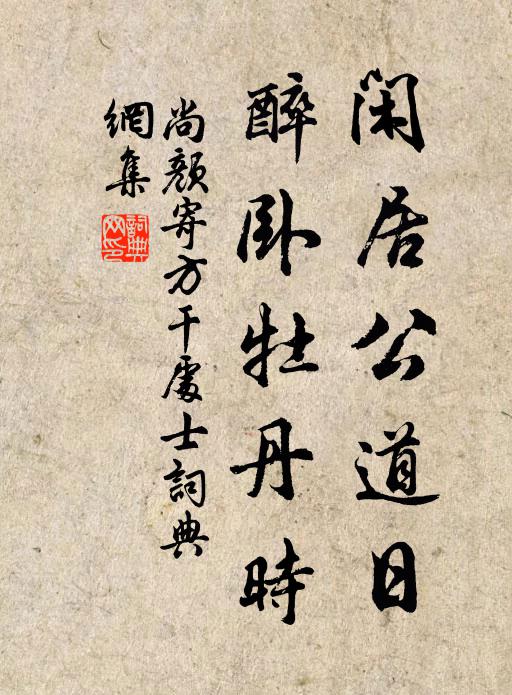 閑居公道日
醉卧牡丹時
尚顏寄方干處士詞典
網集
詞典
网印